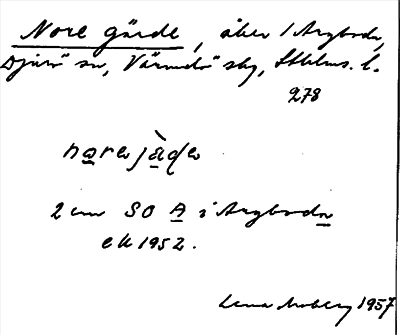 Nore gärde, åker i Aryboda,
Djurö sn, Värmdö skg, Sthlms. l.
278
narejà̱de
2 cm SO A i Arybodn
ek 1952.
Lena Moberg 1957